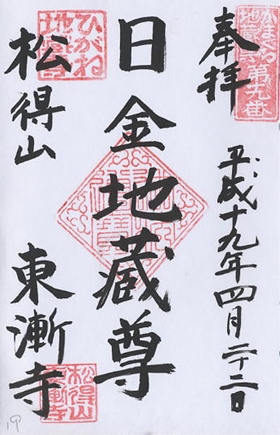 奉拝
平成十九年四月二十二日
日金地蔵尊
松得山
東漸寺
ひがね
地蔵尊
松得山
東漸寺
19